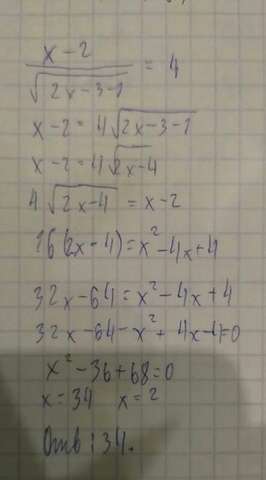 x-2/√(2x-3-1) = 4
x-2=4√(2x-3-1)
x-2=4√(2x-4)
4√(2x-4) = x-2
16(2x-4)=x²-4x+4
32x-64=x²-4x+4
32x-64-x²+4x-4=0
x²-36+68=0
x=34 x=2
Отв: 34.